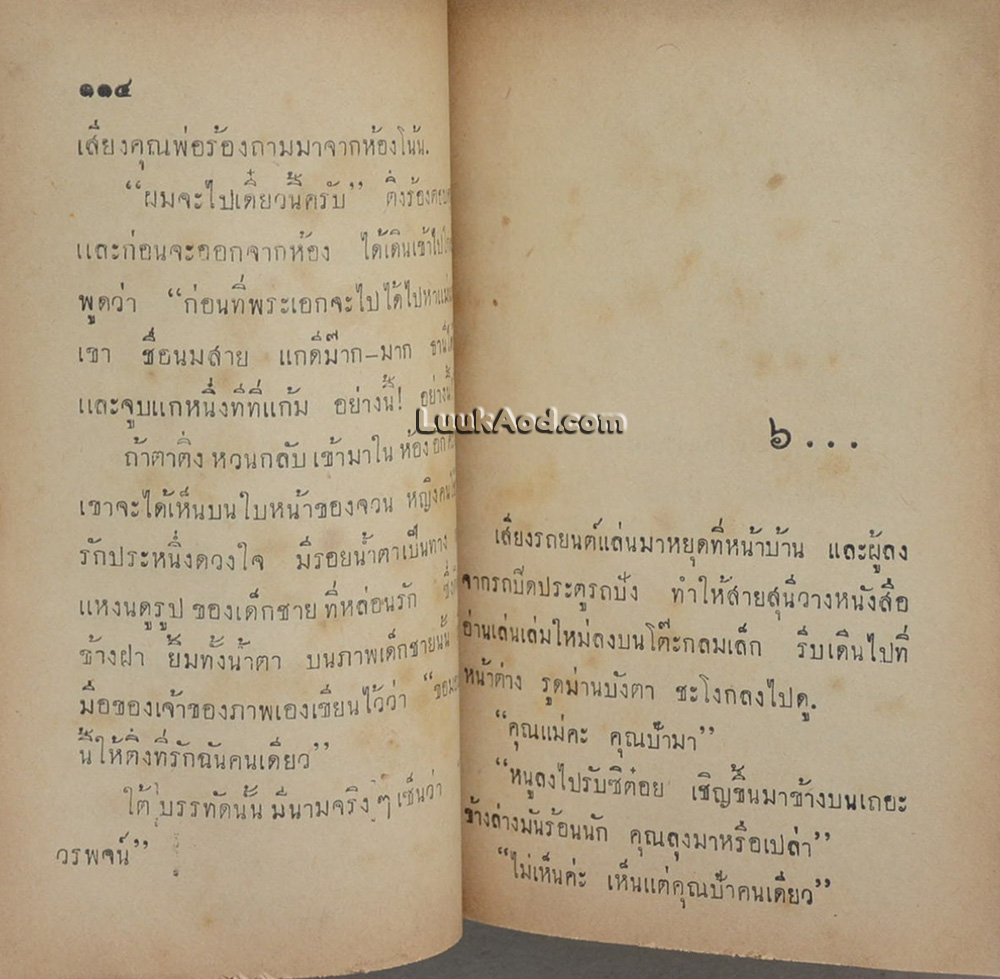 ๑๑๔
เสียงคุณพ่อร้องถามมาจากห้องโน้น.
“ผมจะไปเดี๋ยวนี้ครับ” ติ่งร้อง
และก่อนจะออกจากห้อง ได้เดินเข้าไป
พูดว่า “ก่อนที่พระเอกจะไป ได้ไปหา
เขา ชื่อนมสาย แกดีม๊าก-มาก
และจูบแกหนึ่งทีที่แก้ม อย่างนี้! อย่าง
ถ้าตาติ่ง หวนกลับ เข้ามาใน ห้อง อีก
เขาจะได้เห็นบนใบหน้าของจวน หญิง
รักประหนึ่งดวงใจ มีรอยน้ำตาเป็นทาง
แหงนดูรูป ของเด็กชาย ที่หล่อนรัก
ข้างฝา ยิ้มทั้งน้ำตา บนภาพเด็กชายนั้น
มือของเจ้าของภาพเองเขียนไว้ว่า
นี้ให้ติ่งที่รักฉันคนเดียว”
ใต้ บรรทัดนั้น มีนามจริง ๆ เซ็นว่า
วรพจน์”
LuukAod.com
๖...
เสียงรถยนต์แล่นมาหยุดที่หน้าบ้าน และผู้ลง
จากรถปิดประตูรถปัง ทำให้สายสุนีวางหนังสือ
อ่านเล่นเล่มใหม่ลงบนโต๊ะกลมเล็ก รีบเดินไปที่
หน้าต่าง รูดม่านบังตา ชะโงกลงไปดู.
“คุณแม่คะ คุณป้ามา”
“หนูลงไปรับซิต๋อย เชิญขึ้นมาข้างบนเถอะ
ข้างล่างมันร้อนนัก คุณลุงมาหรือเปล่า”
“ไม่เห็นค่ะ เห็นแต่คุณป้าคนเดียว”